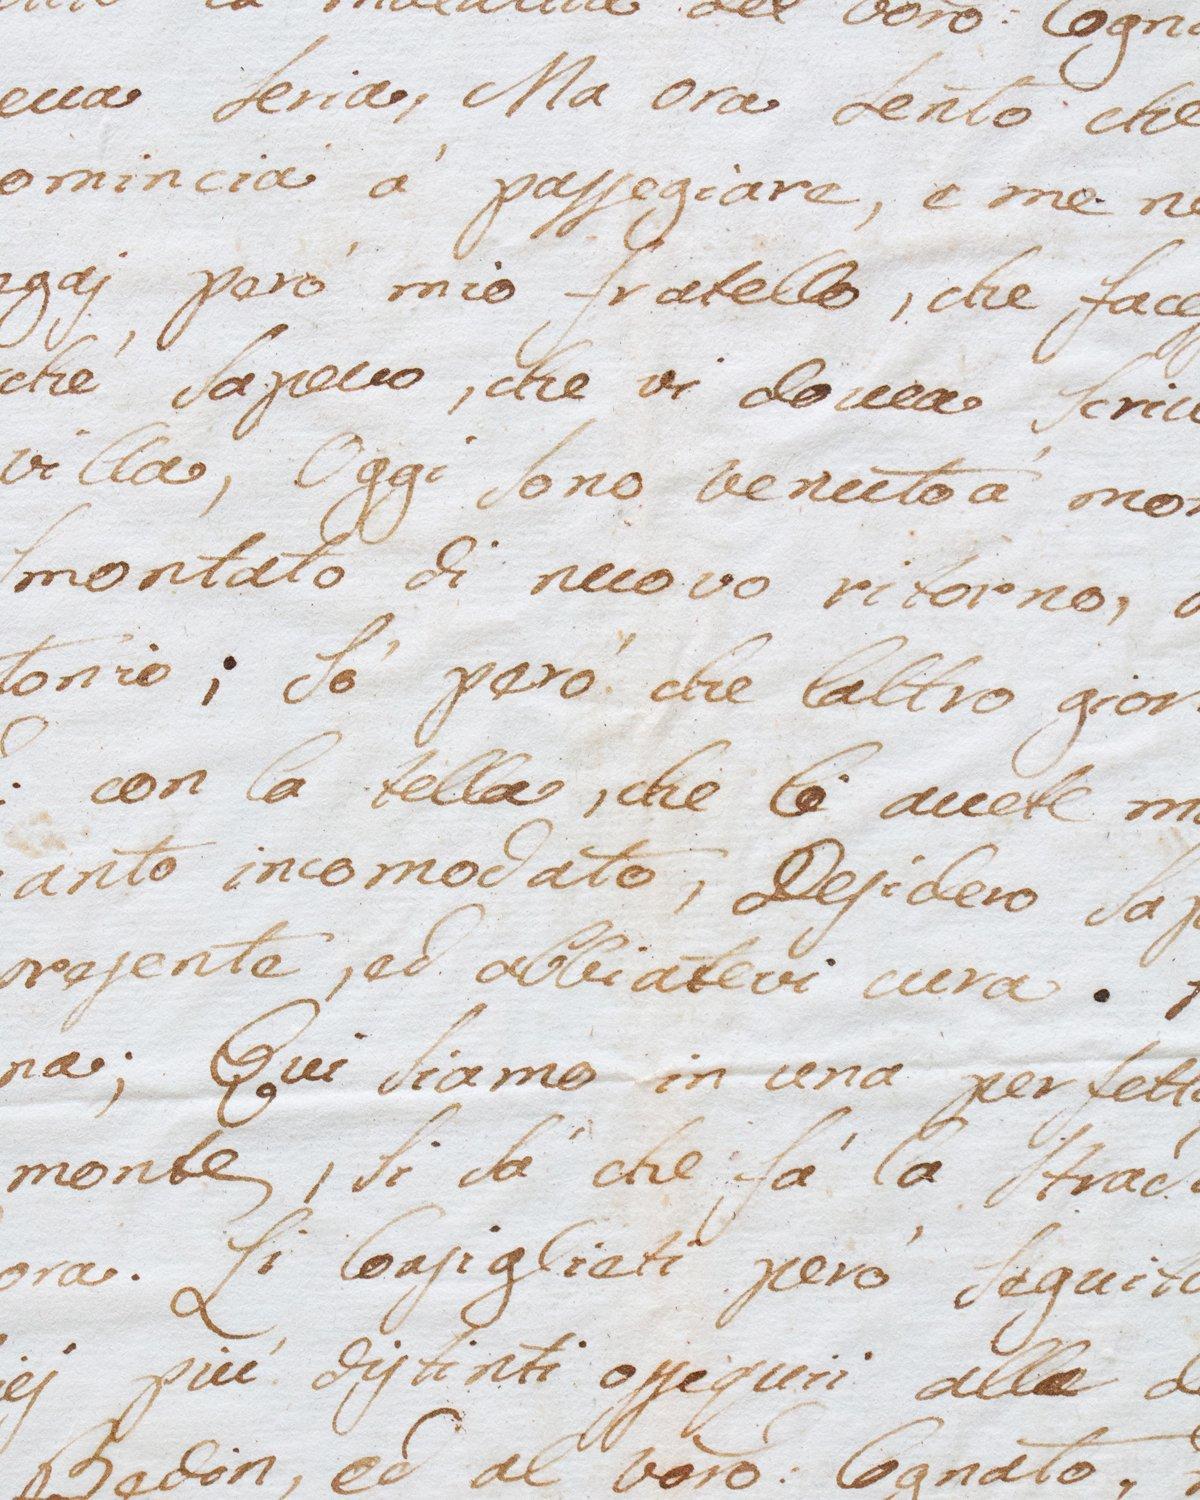 la malattia del vōro: Cogna
eua seria, Ma ora sento che
omincia à passegiare, e me ne
però mio fratello, che facej
ché sapeuo, che vi doueua Scriu
villa, Oggi sono venuto à mon
smontato di nuovo ritorno,
tonio; Só però che laltro gior
con la tella, che li auete m
anto incomodato, Desidero sap
presente, ed abbiatevi cura.
na; Qui siamo in una perfetta
monte, si sá che fá la strad
ora. Li Consiglieti però seguita
iej piú distinti ossequii alle
Bedin, ed al vōro: Cognato,